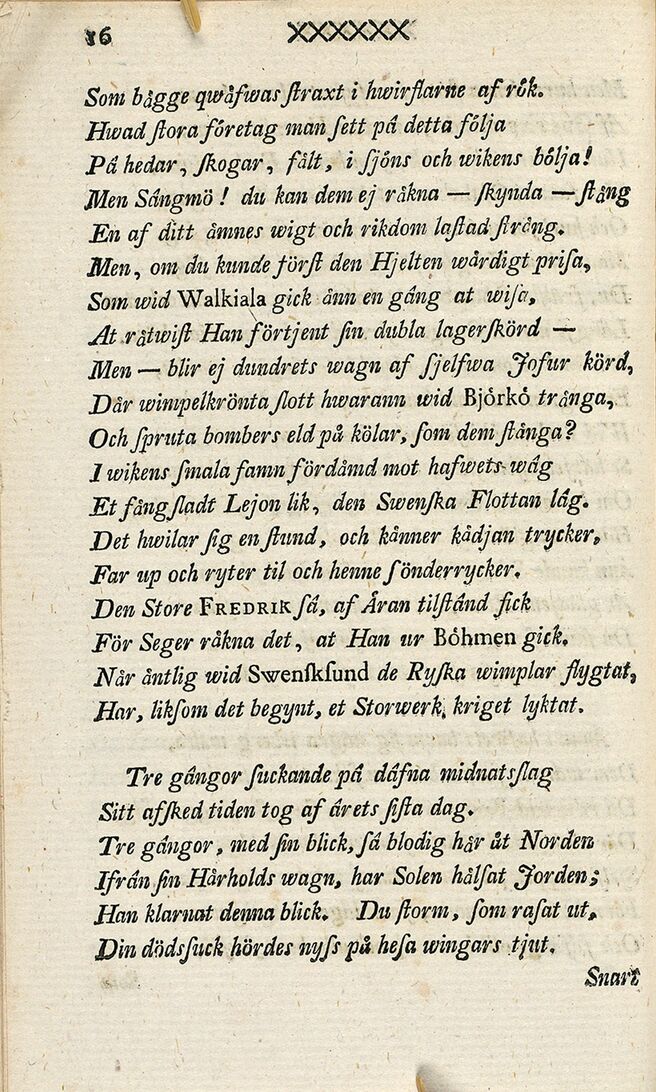 16 XXXXXX
Som bägge qwäfwas straxt i hwirflarne af rök.
Hwad stora företag man sett på detta följa
På hedar, skogar, fält, i sjöns och wikens bölja!
Men Sångmö! du kan dem ej räkna — skynda — stäng
En af ditt ämnes wigt och rikdom lastad sträng.
Men, om du kunde först den Hjelten wärdigt prisa,
Som wid Walkiala gick änn en gång at wisa,
At rätwist Han förtjent sin dubla lagerskörd —
Men — blir ej dundrets wagn af sjelfwa Jofur körd,
Där wimpelkrönta slott hwarann wid Björkö tränga,
Och spruta bombers eld på kölar, som dem stänga?
I wikens smala famn fördämd mot hafwets wåg
Et fångsladt Lejon lik, den Swenska Flottan låg.
Det hwilar sig en stund, och känner kädjan trycker,
Far up och ryter til och henne sönderrycker.
Den Store FREDRIK så, af Äran tilstånd fick
För Seger räkna det, at Han ur Böhmen gick.
När äntlig wid Swensksund de Ryska wimplar flygtat,
Har, liksom det begynt, et Storwerk, kriget lyktat.
Tre gångor suckande på däfna midnatsslag
Sitt afsked tiden tog af årets sista dag.
Tre gångor, med sin blick, så blodig här åt Norden
Ifrån sin Härholds wagn, har Solen hälsat Jorden;
Han klarnat denna blick. Du storm, som rasat ut,
Din dödssuck hördes nyss på hesa wingars tjut.
Snart